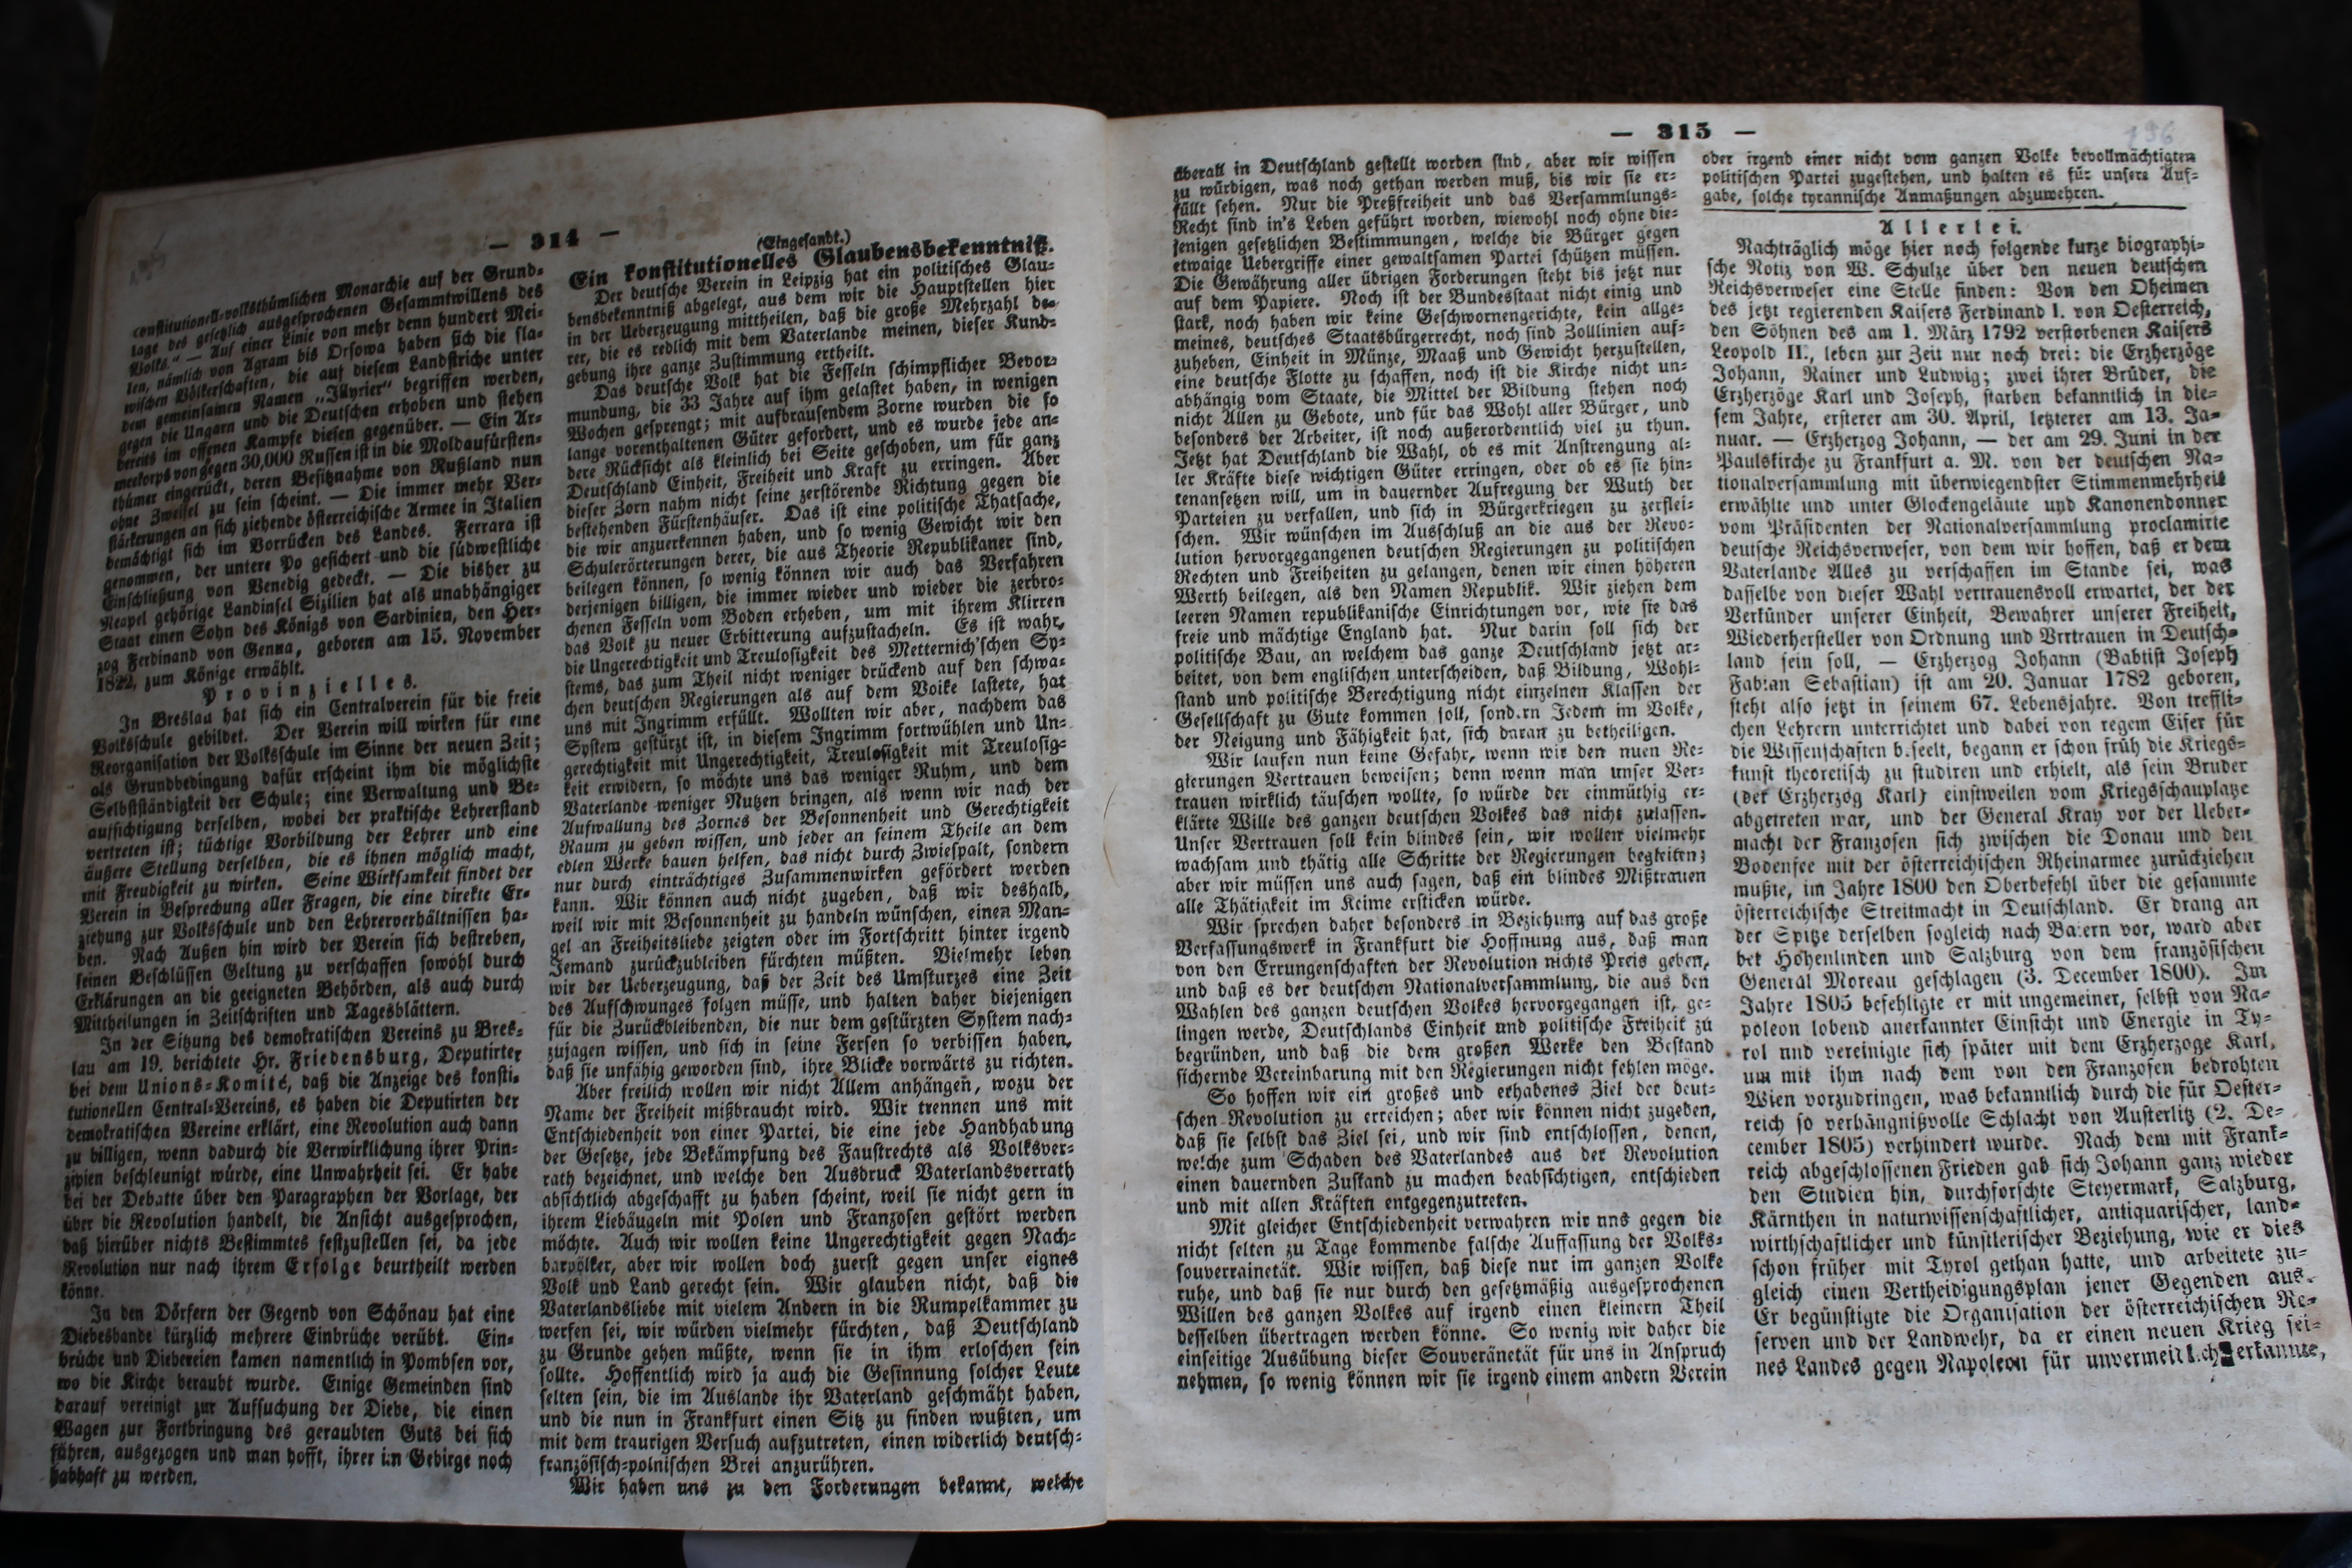 — 314 —
constitutionell-volksthümlichen Monarchie auf der Grund-
lage des gesetzlich ausgesprochenen Gesammtwillens des
Volks." — Auf einer Linie von mehr denn hundert Mei-
len, nämlich von Agram bis Orsowa haben sich die sla-
wischen Völkerschaften, die auf diesem Landstriche unter
dem gemeinsamen Namen „Illyrier" begriffen werden,
gegen die Ungarn und die Deutschen erhoben und stehen
bereits im offenen Kampfe diesen gegenüber. — Ein Ar-
meekorps von gegen 30,000 Russen ist in die Moldaufürsten-
thümer eingerückt, deren Besitznahme von Rußland nun
ohne Zweifel zu sein scheint. — Die immer mehr Ver-
stärkerungen an sich ziehende österreichische Armee in Italien
bemächtigt sich im Vorrücken des Landes. Ferrara ist
genommen, der untere Po gesichert und die südwestliche
Einschließung von Venedig gedeckt. — Die bisher zu
Neapel gehörige Landinsel Sizilien hat als unabhängiger
Staat einen Sohn des Königs von Sardinien, den Her-
zog Ferdinand von Genua, geboren am 15. November
1822, zum Könige erwählt.
Provinzielles.
In Breslau hat sich ein Centralverein für die freie
Volksschule gebildet. Der Verein will wirken für eine
Reorganisation der Volksschule im Sinne der neuen Zeit;
als Grundbedingung dafür erscheint ihm die möglichste
Selbstständigkeit der Schule; eine Verwaltung und Be-
aufsichtigung derselben, wobei der praktische Lehrerstand
vertreten ist; tüchtige Vorbildung der Lehrer und eine
äußere Stellung derselben, die es ihnen möglich macht,
mit Freudigkeit zu wirken. Seine Wirksamkeit findet der
Verein in Besprechung aller Fragen, die eine direkte Er-
ziehung zur Volksschule und den Lehrerverhältnissen ha-
ben. Nach Außen hin wird der Verein sich bestreben,
seinen Beschlüssen Geltung zu verschaffen sowohl durch
Erklärungen an die geeigneten Behörden, als auch durch
Mittheilungen in Zeitschriften und Tagesblättern.
In der Sitzung des demokratischen Vereins zu Bres-
lau am 19. berichtete Hr. Friedensburg, Deputirter
bei dem Unions-Komité, daß die Anzeige des konsti-
tutionellen Central-Vereins, es haben die Deputirten der
demokratischen Vereine erklärt, eine Revolution auch dann
zu billigen, wenn dadurch die Verwirklichung ihrer Prin-
zipien beschleunigt würde, eine Unwahrheit sei. Er habe
bei der Debatte über den Paragraphen der Vorlage, der
über die Revolution handelt, die Ansicht ausgesprochen,
daß hierüber nichts Bestimmtes festzustellen sei, da jede
Revolution nur nach ihrem Erfolge beurtheilt werden
könne.
In den Dörfern der Gegend von Schönau hat eine
Diebesbande kürzlich mehrere Einbrüche verübt. Ein-
brüche und Diebereien kamen namentlich in Pombsen vor,
wo die Kirche beraubt wurde. Einige Gemeinden sind
darauf vereinigt zur Aufsuchung der Diebe, die einen
Wagen zur Fortbringung des geraubten Guts bei sich
führen, ausgezogen und man hofft, ihrer im Gebirge noch
habhaft zu werden.
(Eingesandt.)
Ein konstitutionelles Glaubensbekenntniß.
Der deutsche Verein in Leipzig hat ein politisches Glau-
bensbekenntniß abgelegt, aus dem wir die Hauptstellen hier
in der Ueberzeugung mittheilen, daß die große Mehrzahl de-
rer, die es redlich mit dem Vaterlande meinen, dieser Kund-
gebung ihre ganze Zustimmung ertheilt.
Das deutsche Volk hat die Fesseln schimpflicher Bevor-
mundung, die 33 Jahre auf ihm gelastet haben, in wenigen
Wochen gesprengt; mit aufbrausendem Zorne wurden die so
lange vorenthaltenen Güter gefordert, und es wurde jede an-
dere Rücksicht als kleinlich bei Seite geschoben, um für ganz
Deutschland Einheit, Freiheit und Kraft zu erringen. Aber
dieser Zorn nahm nicht seine zerstörende Richtung gegen die
bestehenden Fürstenhäuser. Das ist eine politische Thatsache,
die wir anzuerkennen haben, und so wenig Gewicht wir den
Schulerörterungen derer, die aus Theorie Republikaner sind,
beilegen können, so wenig können wir auch das Verfahren
derjenigen billigen, die immer wieder und wieder die zerbro-
chenen Fesseln vom Boden erheben, um mit ihrem Klirren
das Volk zu neuer Erbitterung aufzustacheln. Es ist wahr,
die Ungerechtigkeit und Treulosigkeit des Metternich'schen Sy-
stems, das zum Theil nicht weniger drückend auf den schwa-
chen deutschen Regierungen als auf dem Volke lastete, hat
uns mit Ingrimm erfüllt. Wollten wir aber, nachdem das
System gestürzt ist, in diesem Ingrimm fortwühlen und Un-
gerechtigkeit mit Ungerechtigkeit, Treulosigkeit mit Treulosig-
keit erwidern, so möchte uns das weniger Ruhm, und dem
Vaterlande weniger Nutzen bringen, als wenn wir nach der
Aufwallung des Zornes der Besonnenheit und Gerechtigkeit
Raum zu geben wissen, und jeder an seinem Theile an dem
edlen Werke bauen helfen, das nicht durch Zwiespalt, sondern
nur durch einträchtiges Zusammenwirken gefördert werden
kann. Wir können auch nicht zugeben, daß wir deshalb,
weil wir mit Besonnenheit zu handeln wünschen, einen Man-
gel an Freiheitsliebe zeigten oder im Fortschritt hinter irgend
Jemand zurückzubleiben fürchten müßten. Vielmehr leben
wir der Ueberzeugung, daß der Zeit des Umsturzes eine Zeit
des Aufschwunges folgen müsse, und halten daher diejenigen
für die Zurückbleibenden, die nur dem gestürzten System nach-
zujagen wissen, und sich in seine Fersen so verbissen haben,
daß sie unfähig geworden sind, ihre Blicke vorwärts zu richten.
Aber freilich wollen wir nicht Allem anhängen, wozu der
Name der Freiheit mißbraucht wird. Wir trennen uns mit
Entschiedenheit von einer Partei, die eine jede Handhabung
der Gesetze, jede Bekämpfung des Faustrechts als Volksver-
rath bezeichnet, und welche den Ausdruck Vaterlandsverrath
absichtlich abgeschafft zu haben scheint, weil sie nicht gern in
ihrem Liebäugeln mit Polen und Franzosen gestört werden
möchte. Auch wir wollen keine Ungerechtigkeit gegen Nach-
barvölker, aber wir wollen doch zuerst gegen unser eignes
Volk und Land gerecht sein. Wir glauben nicht, daß die
Vaterlandsliebe mit vielem Andern in die Rumpelkammer zu
werfen sei, wir würden vielmehr fürchten, daß Deutschland
zu Grunde gehen müßte, wenn sie in ihm erloschen sein
sollte. Hoffentlich wird ja auch die Gesinnung solcher Leute
selten sein, die im Auslande ihr Vaterland geschmäht haben,
und die nun in Frankfurt einen Sitz zu finden wußten, um
mit dem traurigen Versuch aufzutreten, einen widerlich deutsch-
französisch-polnischen Brei anzurühren.
Wir haben uns zu den Forderungen bekannt, welche
— 315 —
196
überall in Deutschland gestellt worden sind, aber wir wissen
zu würdigen, was noch gethan werden muß, bis wir sie er-
füllt sehen. Nur die Preßfreiheit und das Versammlungs-
Recht sind in's Leben geführt worden, wiewohl noch ohne die-
jenigen gesetzlichen Bestimmungen, welche die Bürger gegen
etwaige Uebergriffe einer gewaltsamen Partei schützen müssen.
Die Gewährung aller übrigen Forderungen steht bis jetzt nur
auf dem Papiere. Noch ist der Bundesstaat nicht einig und
stark, noch haben wir keine Geschwornengerichte, kein allge-
meines, deutsches Staatsbürgerrecht, noch sind Zolllinien auf-
zuheben, Einheit in Münze, Maaß und Gewicht herzustellen,
eine deutsche Flotte zu schaffen, noch ist die Kirche nicht un-
abhängig vom Staate, die Mittel der Bildung stehen noch
nicht Allen zu Gebote, und für das Wohl aller Bürger, und
besonders der Arbeiter, ist noch außerordentlich viel zu thun.
Jetzt hat Deutschland die Wahl, ob es mit Anstrengung al-
ler Kräfte diese wichtigen Güter erringen, oder ob es sie hin-
tenansetzen will, um in dauernder Aufregung der Wuth der
Parteien zu verfallen, und sich in Bürgerkriegen zu zerflei-
schen. Wir wünschen im Ausschluß an die aus der Revo-
lution hervorgegangenen deutschen Regierungen zu politischen
Rechten und Freiheiten zu gelangen, denen wir einen höheren
Werth beilegen, als den Namen Republik. Wir ziehen dem
leeren Namen republikanische Einrichtungen vor, wie sie das
freie und mächtige England hat. Nur darin soll sich der
politische Bau, an welchem das ganze Deutschland jetzt ar-
beitet, von dem englischen unterscheiden, daß Bildung, Wohl-
stand und politische Berechtigung nicht einzelnen Klassen der
Gesellschaft zu Gute kommen soll, sondern Jedem im Volke,
der Neigung und Fähigkeit hat, sich daran zu betheiligen.
Wir laufen nun keine Gefahr, wenn wir den nuen Re-
gierungen Vertrauen beweisen; denn wenn man unser Ver-
trauen wirklich täuschen wollte, so würde der einmüthig er-
klärte Wille des ganzen deutschen Volkes das nicht zulassen.
Unser Vertrauen soll kein blindes sein, wir wollen vielmehr
wachsam und thätig alle Schritte der Regierungen begleiten;
aber wir müssen uns auch sagen, daß ein blindes Mißtrauen
alle Thätigkeit im Keime ersticken würde.
Wir sprechen daher besonders in Beziehung auf das große
Verfassungswerk in Frankfurt die Hoffnung aus, daß man
von den Errungenschaften der Revolution nichts Preis geben,
und daß es der deutschen Nationalversammlung, die aus den
Wahlen des ganzen deutschen Volkes hervorgegangen ist, ge-
lingen werde, Deutschlands Einheit und politische Freiheit zu
begründen, und daß die dem großen Werke den Bestand
sichernde Vereinbarung mit den Regierungen nicht fehlen möge.
So hoffen wir ein großes und erhabenes Ziel der deut-
schen Revolution zu erreichen; aber wir können nicht zugeben,
daß sie selbst das Ziel sei, und wir sind entschlossen, denen,
welche zum Schaden des Vaterlandes aus der Revolution
einen dauernden Zustand zu machen beabsichtigen, entschieden
und mit allen Kräften entgegenzutreten.
Mit gleicher Entschiedenheit verwahren wir uns gegen die
nicht selten zu Tage kommende falsche Auffassung der Volks-
souverrainetät. Wir wissen, daß diese nur im ganzen Volke
ruhe, und daß sie nur durch den gesetzmäßig ausgesprochenen
Willen des ganzen Volkes auf irgend einen kleinern Theil
desselben übertragen werden könne. So wenig wir daher die
einseitige Ausübung dieser Souveränetät für uns in Anspruch
nehmen, so wenig können wir sie irgend einem andern Verein
oder irgend einer nicht vom ganzen Volke bevollmächtigten
politischen Partei zugestehen, und halten es für unsere Auf-
gabe, solche tyrannische Anmaßungen abzuwehren.
Allerlei.
Nachträglich möge hier noch folgende kurze biographi-
sche Notiz von W. Schulze über den neuen deutschen
Reichsverweser eine Stelle finden: Von den Oheimen
des jetzt regierenden Kaisers Ferdinand I. von Oesterreich,
den Söhnen des am 1. März 1792 verstorbenen Kaisers
Leopold II., leben zur Zeit nur noch drei: die Erzherzöge
Johann, Rainer und Ludwig; zwei ihrer Brüder, die
Erzherzöge Karl und Joseph, starben bekanntlich in die-
sem Jahre, ersterer am 30. April, letzterer am 13. Ja-
nuar. — Erzherzog Johann, — der am 29. Juni in der
Paulskirche zu Frankfurt a. M. von der deutschen Na-
tionalversammlung mit überwiegendster Stimmenmehrheit
erwählte und unter Glockengeläute und Kanonendonner
vom Präsidenten der Nationalversammlung proclamirte
deutsche Reichsverweser, von dem wir hoffen, daß er dem
Vaterlande Alles zu verschaffen im Stande sei, was
dasselbe von dieser Wahl vertrauensvoll erwartet, der der
Verkünder unserer Einheit, Bewahrer unserer Freiheit,
Wiederhersteller von Ordnung und Vrrtrauen in Deutsch-
land sein soll, — Erzherzog Johann (Babtist Joseph
Fabian Sebastian) ist am 20. Januar 1782 geboren,
steht also jetzt in seinem 67. Lebensjahre. Von treffli-
chen Lehrern unterrichtet und dabei von regem Eifer für
die Wissenschaften b.seelt, begann er schon früh die Kriegs-
kunst theoretisch zu studiren und erhielt, als sein Bruder
(der Erzherzog Karl) einstweilen vom Kriegsschauplatze
abgetreten war, und der General Kray vor der Ueber-
macht der Franzosen sich zwischen die Donau und den
Bodensee mit der österreichischen Rheinarmee zurückziehen
mußte, im Jahre 1800 den Oberbefehl über die gesammte
österreichische Streitmacht in Deutschland. Er drang an
der Spitze derselben sogleich nach Baiern vor, ward aber
bei Hohenlinden und Salzburg von dem französischen
General Moreau geschlagen (3. December 1800). Im
Jahre 1805 befehligte er mit ungemeiner, selbst von Na-
poleon lobend anerkannter Einsicht und Energie in Ty-
rol und vereinigte sich später mit dem Erzherzoge Karl,
um mit ihm nach dem von den Franzosen bedrohten
Wien vorzudringen, was bekanntlich durch die für Oester-
reich so verhängnißvolle Schlacht von Austerlitz (2. De-
cember 1805) verhindert wurde. Nach dem mit Frank-
reich abgeschlossenen Frieden gab sich Johann ganz wieder
den Studien hin, durchforschte Steyermark, Salzburg,
Kärnthen in naturwissenschaftlicher, antiquarischer, land-
wirthschaftlicher und künstlerischer Beziehung, wie er dies
schon früher mit Tyrol gethan hatte, und arbeitete zu-
gleich einen Vertheidigungsplan jener Gegenden aus.
Er begünstigte die Organisation der österreichischen Re-
serven und der Landwehr, da er einen neuen Krieg sei-
nes Landes gegen Napoleon für unvermeidlich erkannte,